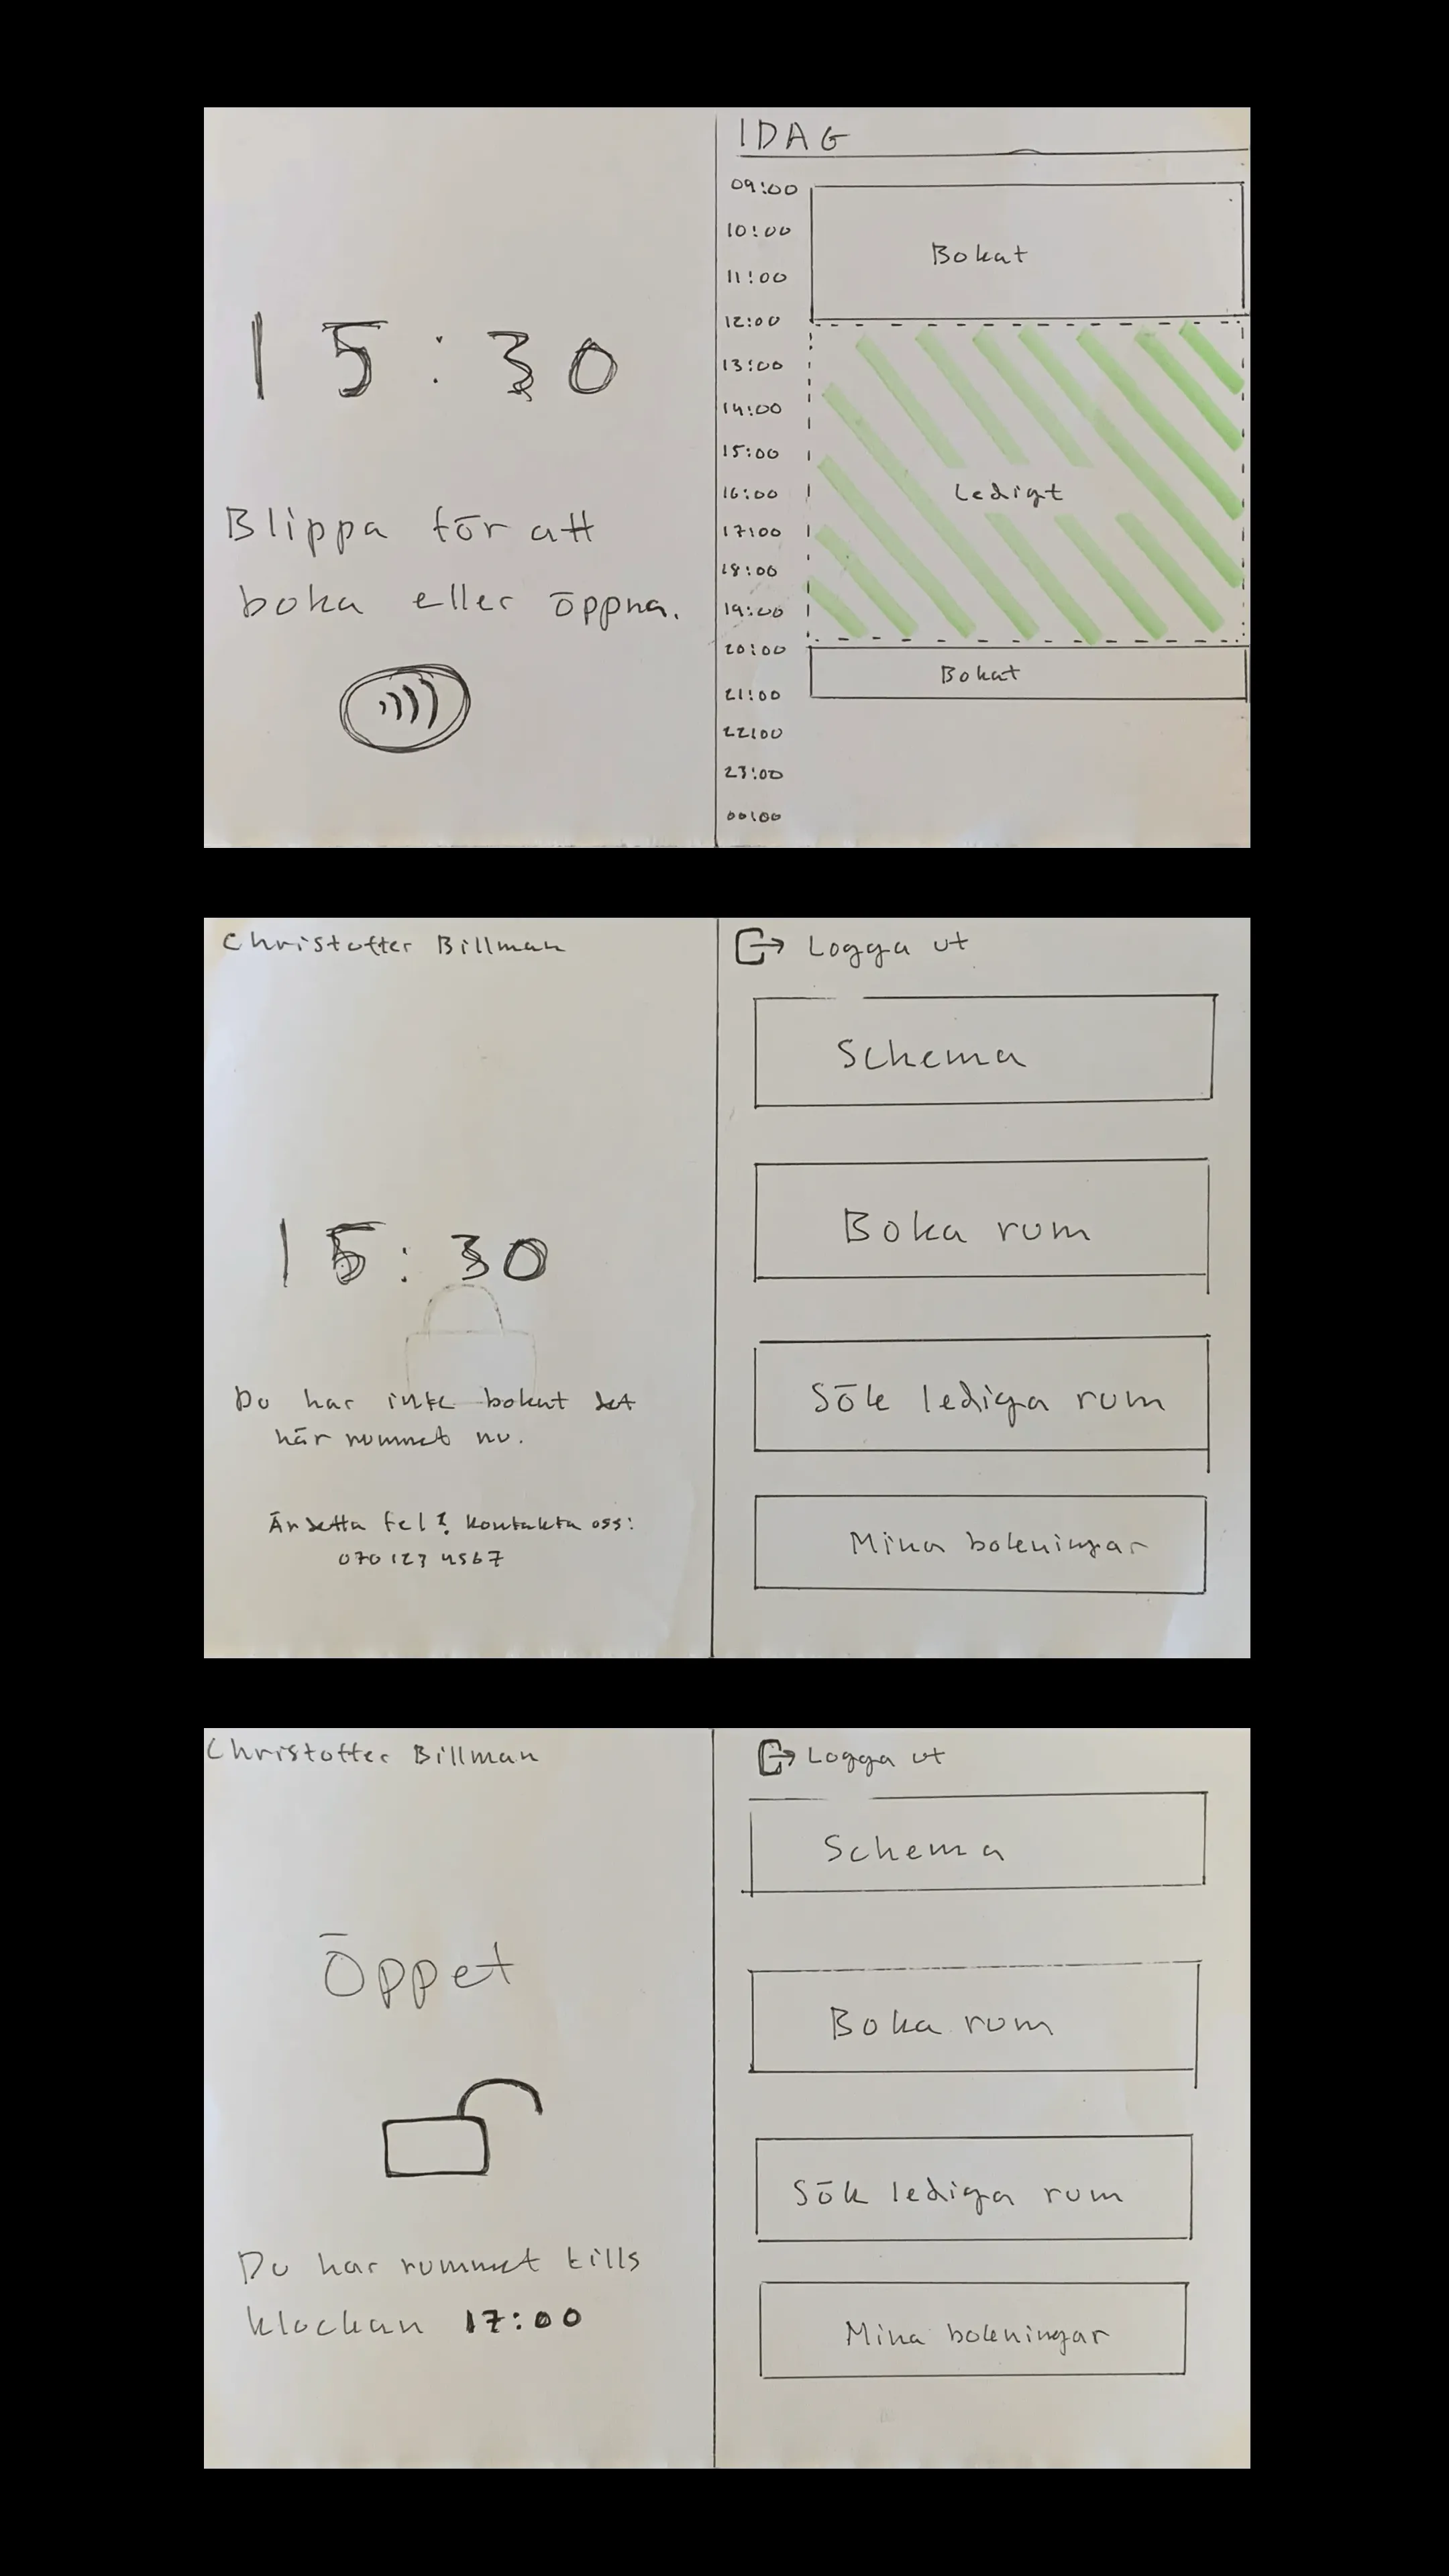 15:30
Blippa för att
boka eller öppna.
IDAG
09:00
10:00
11:00
12:00
13:00
14:00
15:00
16:00
17:00
18:00
19:00
20:00
21:00
22:00
23:00
00:00
Bokat
Ledigt
Bokat
Christoffer Billman
15:30
Du har inte bokat det
här rummet nu.
Är detta fel? Kontakta oss:
070 123 4567
Logga ut
Schema
Boka rum
Sök lediga rum
Mina bokningar
Christoffer Billman
Öppet
Du har rummet tills
klockan 17:00
Logga ut
Schema
Boka rum
Sök lediga rum
Mina bokningar